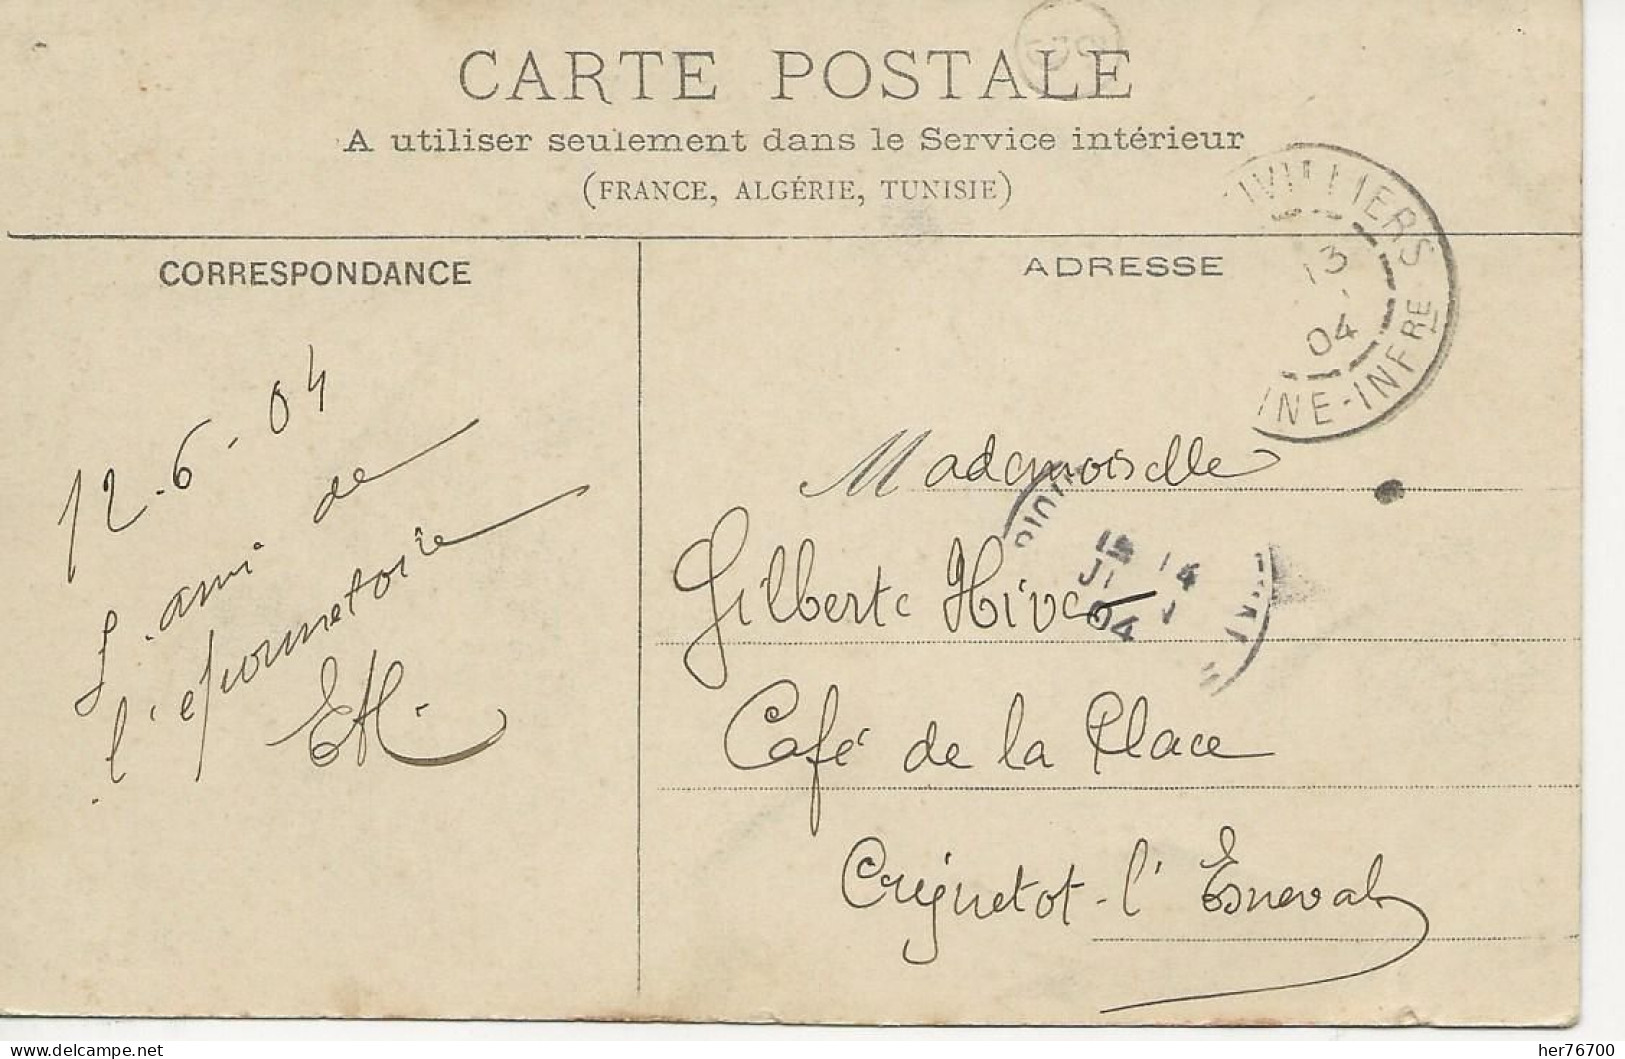 CARTE POSTALE
A utiliser seulement dans le Service intérieur
(FRANCE, ALGÉRIE, TUNISIE)
CORRESPONDANCE
12.6.04
L'ami de
l'épournetoire
EH.
ADRESSE
IVILLIERS
13
04
INE-INFRE
Mademoiselle
Gilberte Hivet
14
04
Café de la Place
Criquetot-l'Esneval
delcampe.net
her76700